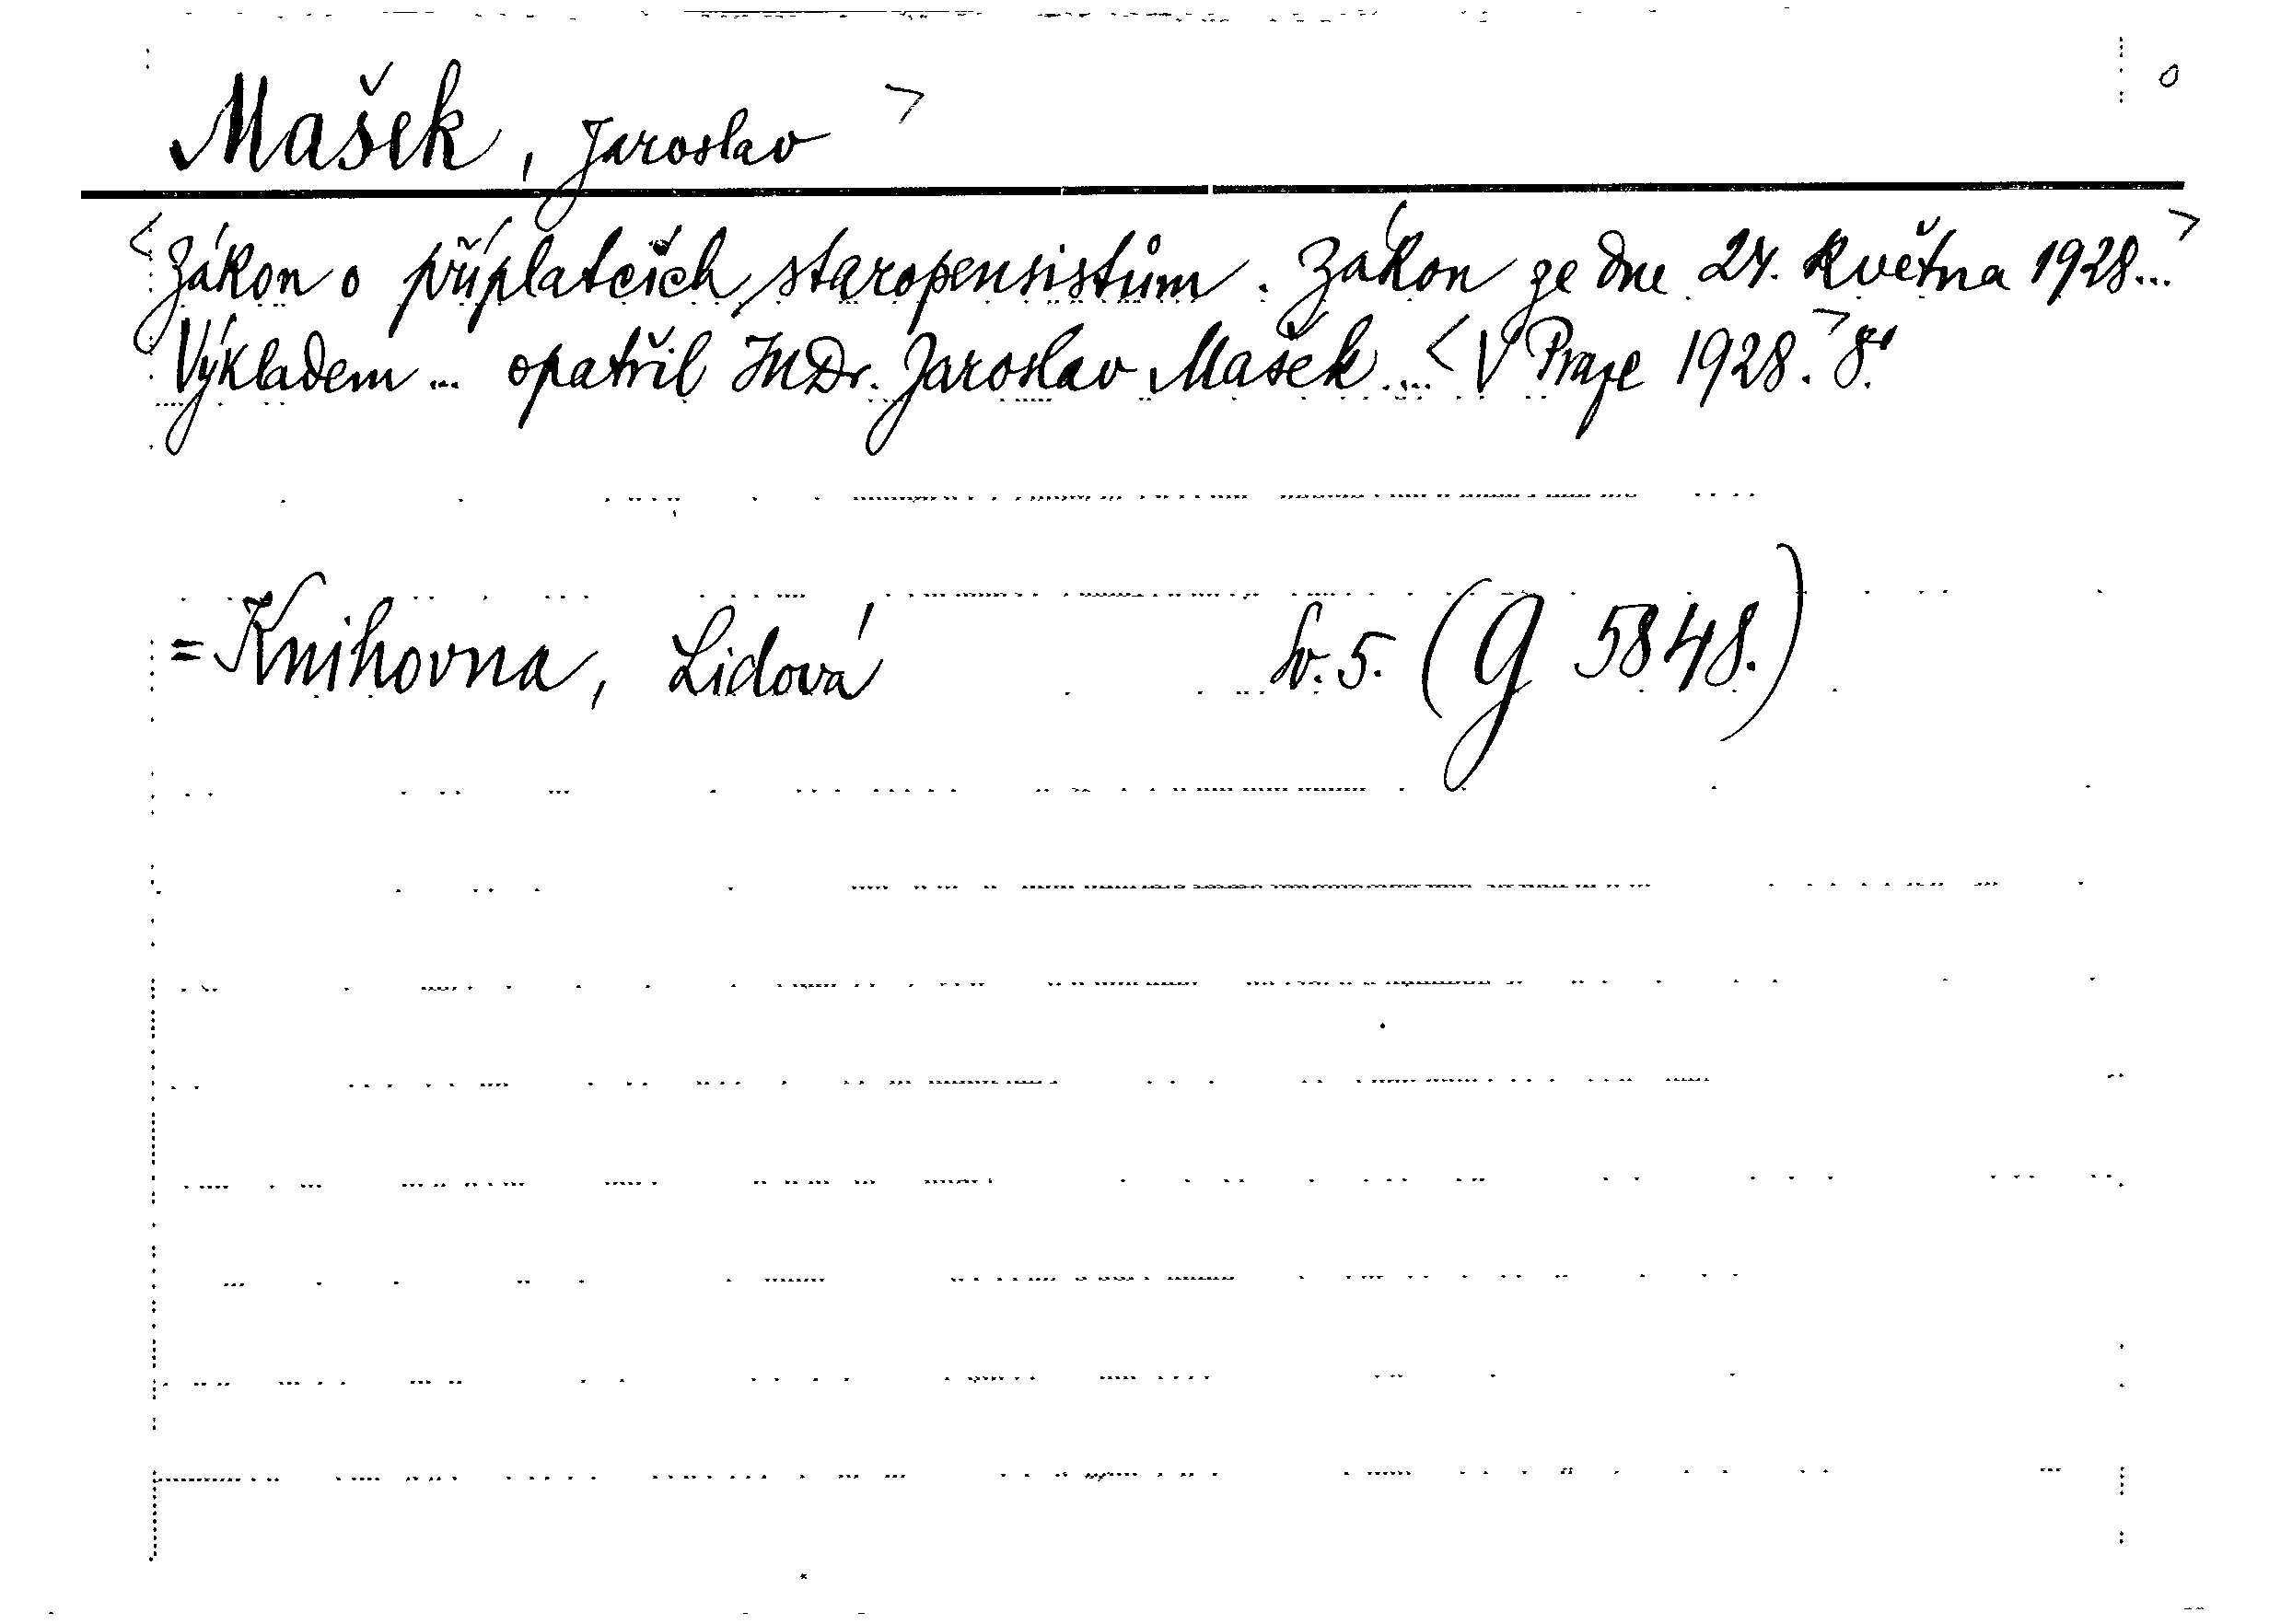 Mašek, Jaroslav > o
<Zákon o příplatcích staropensistům. Zákon ze dne 24. května 1928...>
Výkladem... opatřil JUDr. Jaroslav Mašek... <V Praze 1928.> 8°.
=Knihovna, Lidová Sv. 5. (G 5848.)